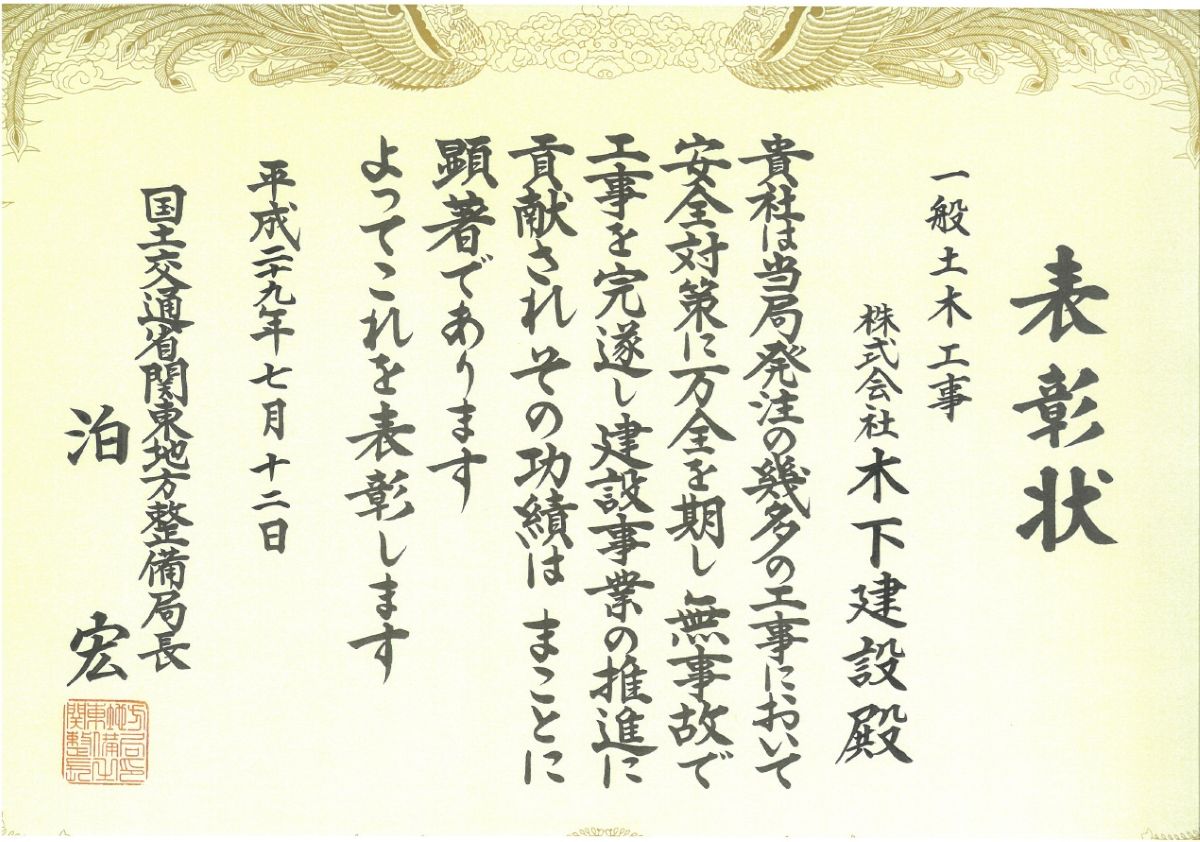 表彰状
一般土木工事
株式会社木下建設殿
貴社は当局発注の幾多の工事において
安全対策に万全を期し無事故で
工事を完遂し建設事業の推進に
貢献されその功績は まことに
顕著であります
よってこれを表彰します
平成二十九年七月十二日
国土交通省関東地方整備局長
泊 宏